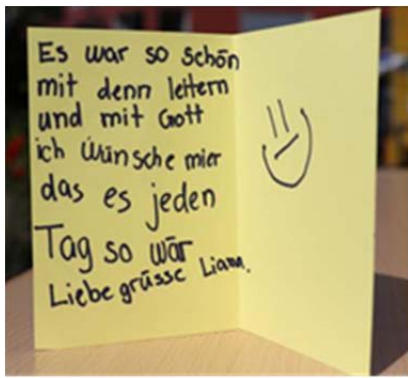 Es war so schön
mit denn leitern
und mit Gott
ich wünsche mier
das es jeden
Tag so wär
Liebe grüsse Liam.